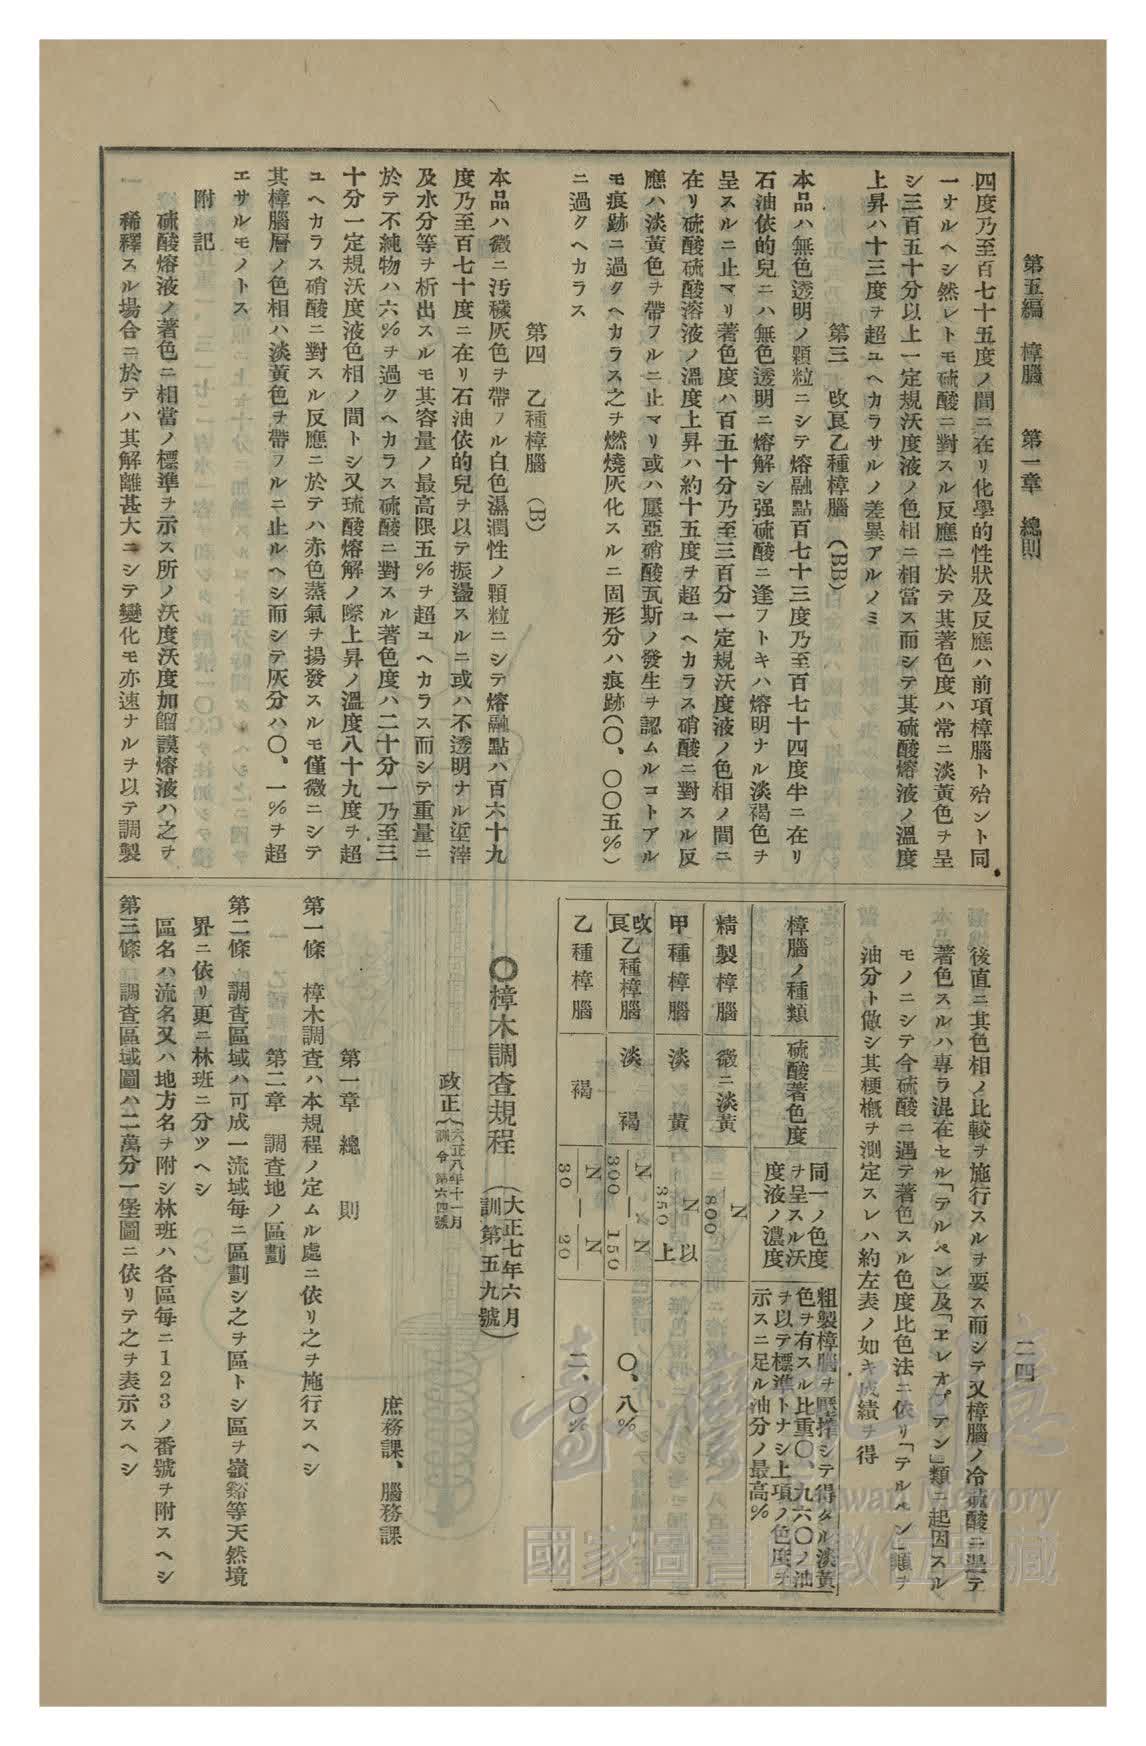 第五編　樟腦　第一章　總則
二四
四度乃至百七十五度ノ間ニ在リ化學的性狀及反應ハ前項樟腦ト殆ント同
一ナルヘシ然レトモ硫酸ニ對スル反應ニ於テ其著色度ハ常ニ淡黃色ヲ呈
シ三百五十分以上一定規沃度液ノ色相ニ相當ス而シテ其硫酸熔液ノ溫度
上昇ハ十三度ヲ超ユヘカラサルノ差異アルノミ
第三　改良乙種樟腦　(BB)
本品ハ無色透明ノ顆粒ニシテ熔融點百七十三度乃至百七十四度半ニ在リ
石油依的兒ニハ無色透明ニ熔解シ强硫酸ニ逢フトキハ熔明ナル淡褐色ヲ
呈スルニ止マリ著色度ハ百五十分乃至三百分一定規沃度液ノ色相ノ間ニ
在リ硫酸硫酸溶液ノ溫度上昇ハ約十五度ヲ超ユヘカラス硝酸ニ對スル反
應ハ淡黃色ヲ帶フルニ止マリ或ハ壓亞硝酸瓦斯ノ發生ヲ認ムルコトアル
モ痕跡ニ過クヘカラス之ヲ燃燒灰化スルニ固形分ハ痕跡(〇、〇〇五%)
ニ過クヘカラス
第四　乙種樟腦　(B)
本品ハ微ニ汚穢灰色ヲ帶フル白色濕潤性ノ顆粒ニシテ熔融點ハ百六十九
度乃至百七十度ニ在リ石油依的兒ヲ以テ振盪スルニ或ハ不透明ナル渣滓
及水分等ヲ析出スルモ其容量ノ最高限五%ヲ超ユヘカラス而シテ重量ニ
於テ不純物ハ六%ヲ過クヘカラス硫酸ニ對スル著色度ハ二十分一乃至三
十分一定規沃度液色相ノ間トシ又琉酸熔解ノ際上昇ノ溫度八十九度ヲ超
ユヘカラス硝酸ニ對スル反應ニ於テハ赤色蒸氣ヲ揚發スルモ僅微ニシテ
其樟腦層ノ色相ハ淡黃色ヲ帶フルニ止ルヘシ而シテ灰分ハ〇、一%ヲ超
エサルモノトス
附記
硫酸熔液ノ著色ニ相當ノ標準ヲ示ス所ノ沃度沃度加餾謨熔液ハ之ヲ
稀釋スル場合ニ於テハ其解離甚大ニシテ變化モ亦速ナルヲ以テ調製
後直ニ其色相ノ比較ヲ施行スルヲ要ス而シテ又樟腦ノ冷硫酸ニ遇テ
著色スルハ專ラ混在セル「テルペン」及「エレオプテン」類ニ起因スル
モノニシテ今硫酸ニ遇テ著色スル色度比色法ニ依リ「テルペン」類ヲ
油分ト做シ其梗槪ヲ測定スレハ約左表ノ如キ成績ヲ得
樟腦ノ種類　硫酸著色度　同一ノ色度ヲ呈スル沃度液ノ濃度　粗製樟腦ヲ壓搾シテ得タル淡黃色ヲ有スル比重〇、九六〇ノ油ヲ以テ標準トナシ上項ノ色度ヲ示スニ足ル油分ノ最高%
精製樟腦　微ニ淡黃　N/800
甲種樟腦　淡黃　N/350以上
改良乙種樟腦　淡褐　N/300—N/150　〇、八%
乙種樟腦　褐　N/30—N/20　二、〇%
◎樟木調査規程　(大正七年六月訓第五九號)
政正(大正八年十一月訓令第六四號)
庶務課、腦務課
第一章　總則
第一條　樟木調査ハ本規程ノ定ムル處ニ依リ之ヲ施行スヘシ
第二章　調査地ノ區劃
第二條　調査區域ハ可成一流域每ニ區劃シ之ヲ區トシ區ヲ嶺谿等天然境
界ニ依リ更ニ林班ニ分ツヘシ
區名ハ流名又ハ地方名ヲ附シ林班ハ各區每ニ123ノ番號ヲ附スヘシ
第三條　調査區域圖ハ二萬分一堡圖ニ依リテ之ヲ表示スヘシ
臺灣記憶
Taiwan Memory
國家圖書館數位典藏